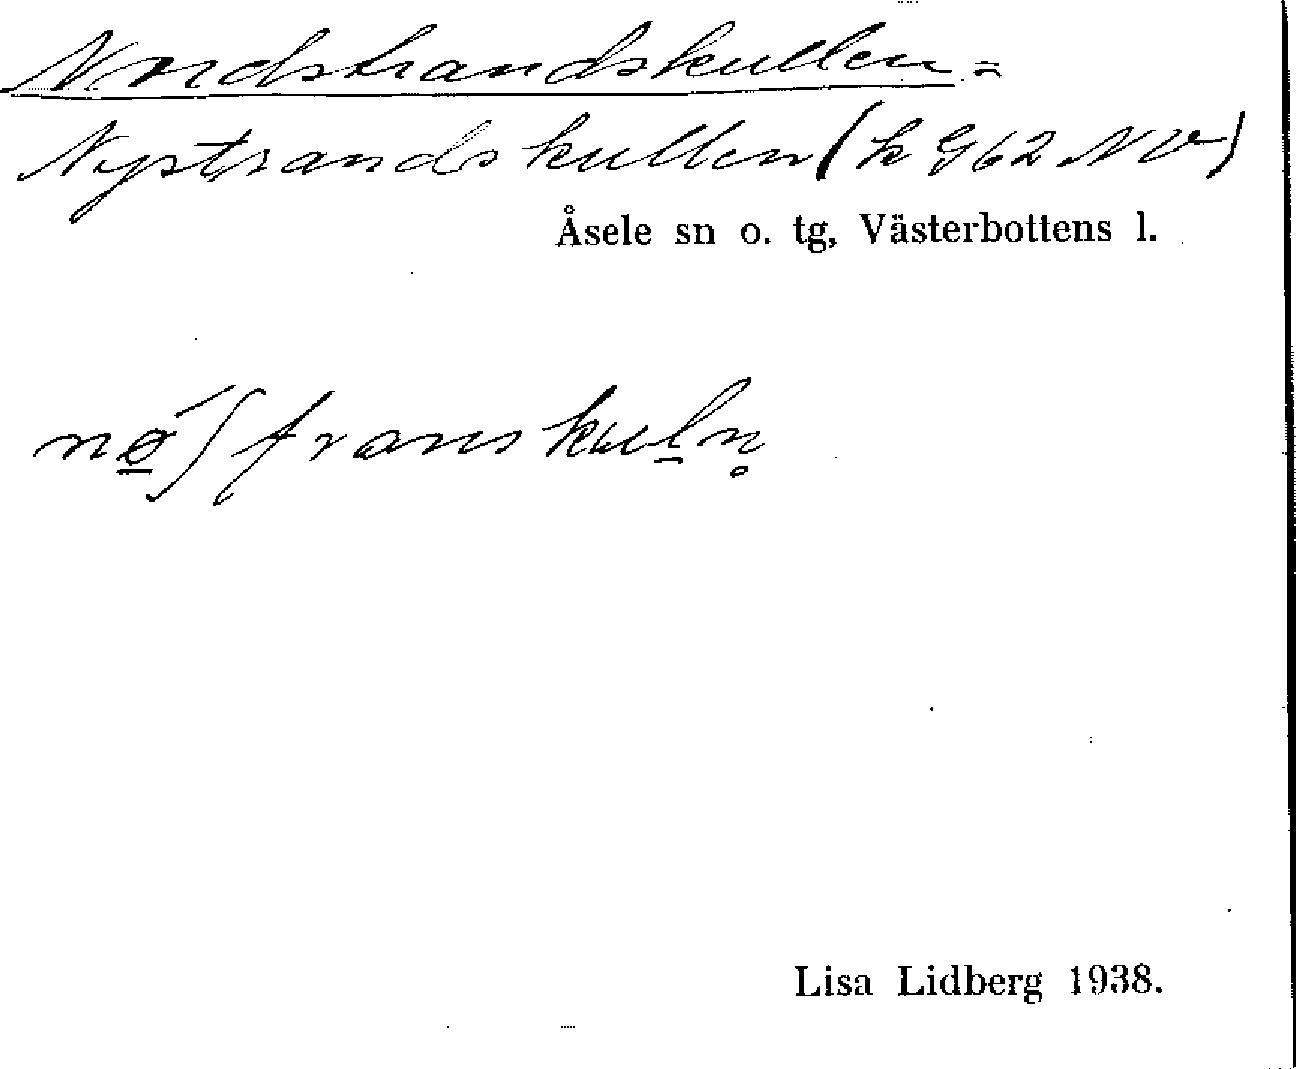 Nordstrandskullen =
Nystrandskullen (k G62 NV)
Åsele sn o. tg, Västerbottens l.
nǿ̱ʃtranskuḻn̥
Lisa Lidberg 1938.